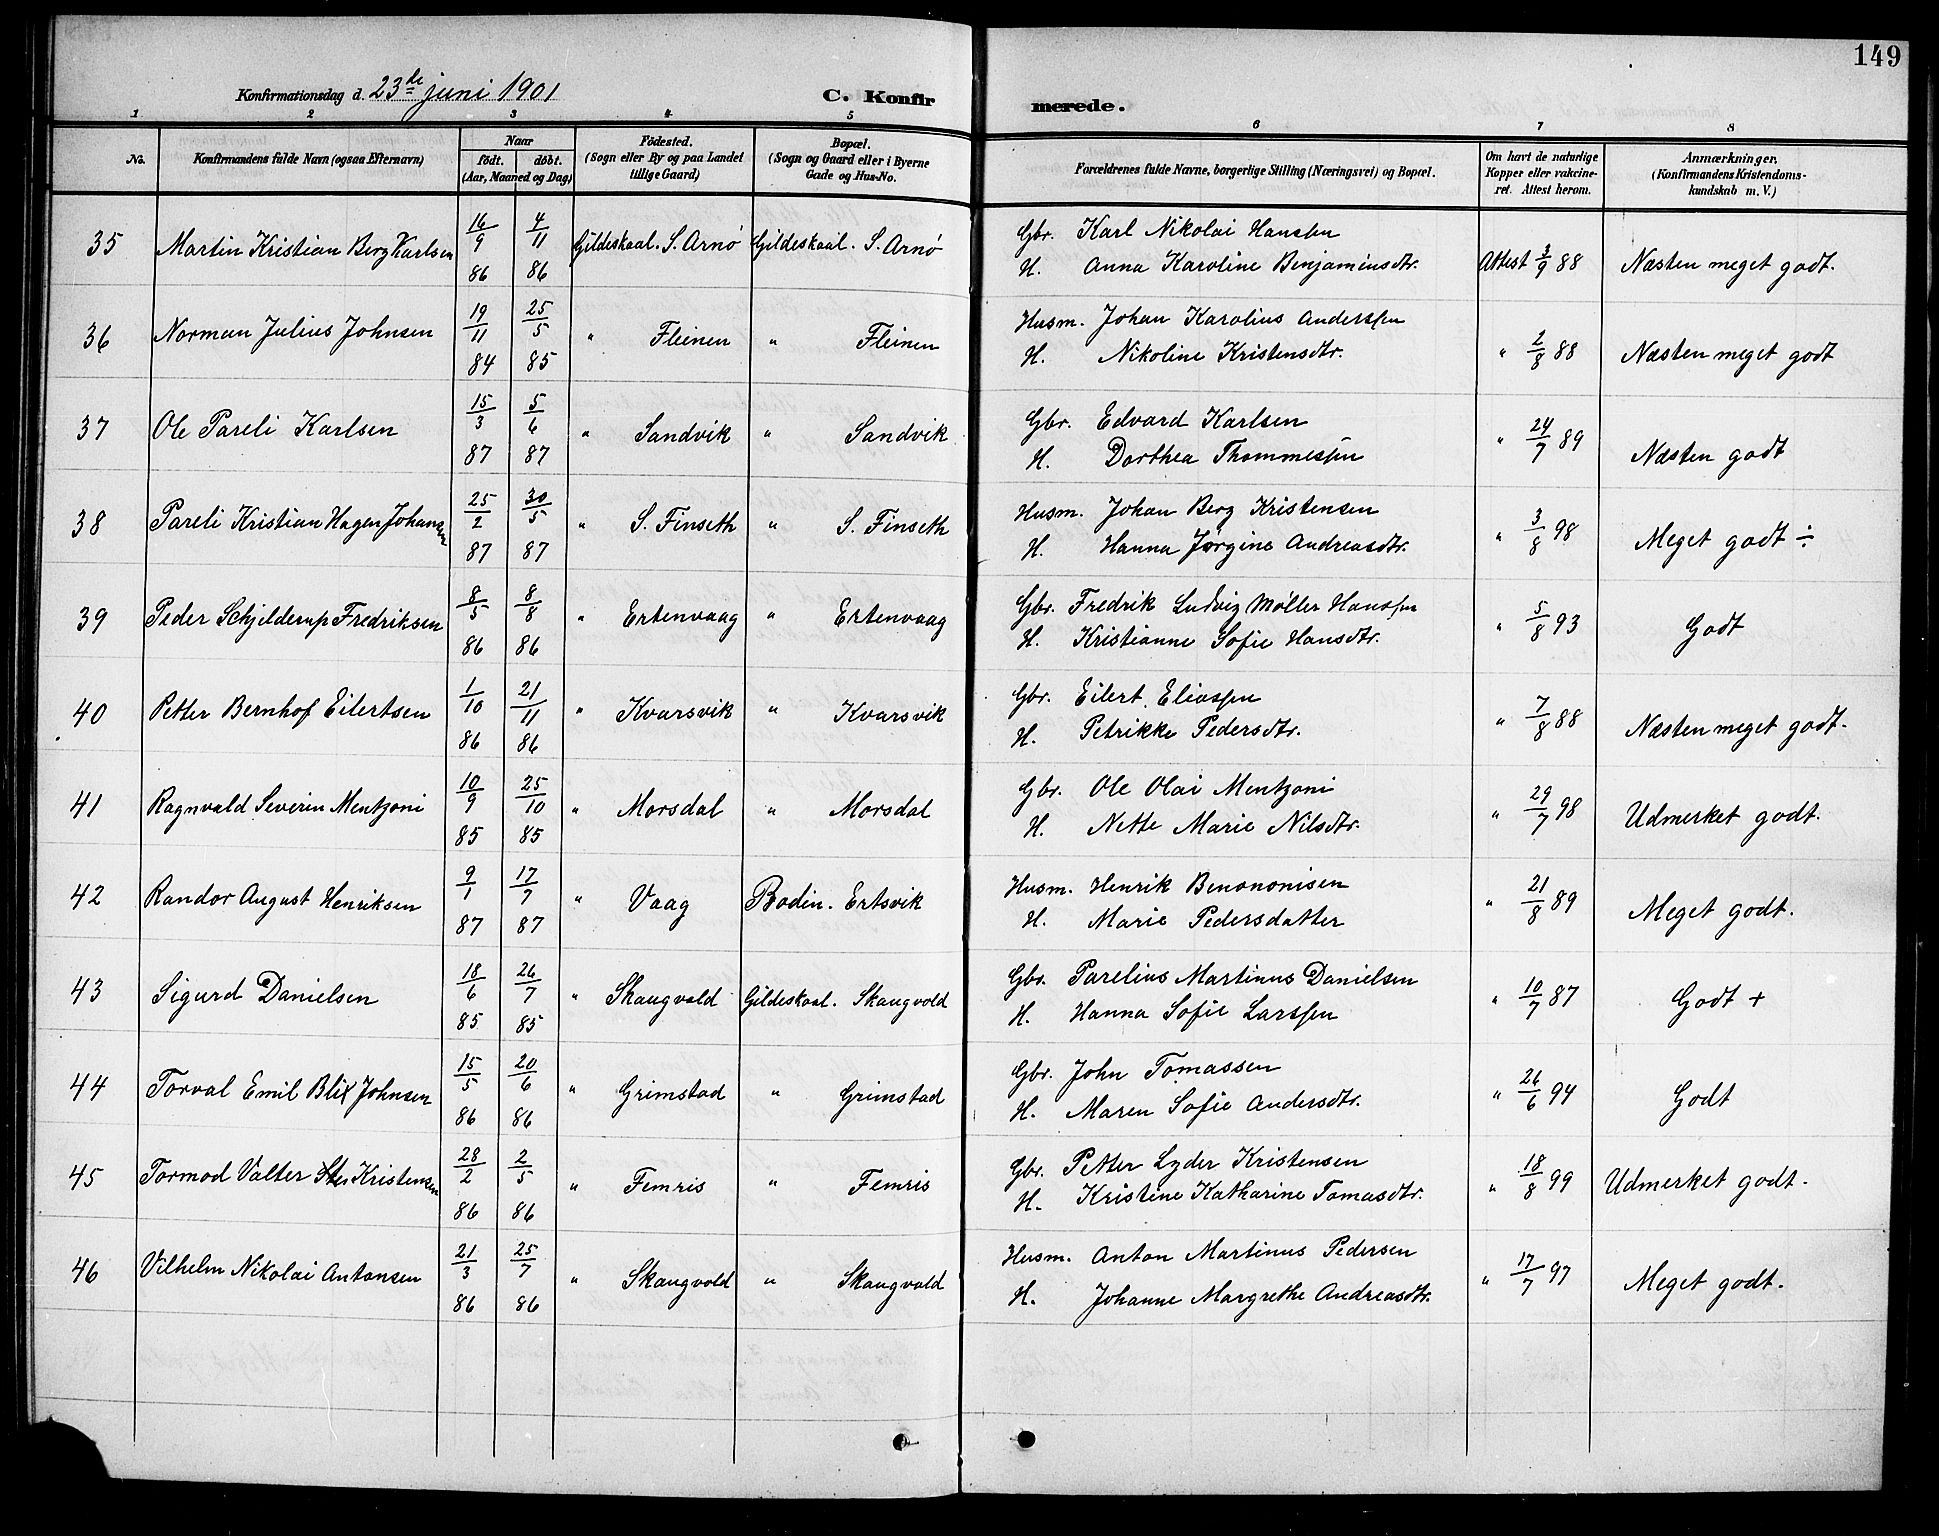 149
Konfirmationsdag d. 23de juni 1901 C. Konfirmerede.
1 2 3 4 5 6 7 8
No. Konfirmandens fulde Navn (ogsaa Efternavn) Naar født. døbt. (Aar, Maaned og Dag) Fødested. (Sogn eller By og paa Landet tillige Gaard) Bopæl. (Sogn og Gaard eller i Byerne Gade og Hus-No. Forældrenes fulde Navne, borgerlige Stilling (Næringsvei) og Bopæl. Om havt de naturlige Kopper eller vakcineret. Attest herom. Anmærkninger. (Konfirmandens Kristendomskundskab m. V.)
35 Martin Kristian Berg Karlsen 16/9 86 4/11 86 Gildeskaal. S. Arnø Gildeskaal. S. Arnø Gbr. Karl Nikolai Hanssen
H. Anna Karoline Benjaminsdtr. Attest 3/9 88 Næsten meget godt.
36 Norman Julius Johnsen 19/11 84 25/5 85 " Fleinen " Fleinen Husm. Johan Karolius Anderssen
H. Nikoline Kristensdtr. " 2/8 88 Næsten meget godt
37 Ole Pareli Karlsen 15/3 87 5/6 87 " Sandvik " Sandvik Gbr. Edvard Karlsen
H. Dorthea Thommessen " 24/7 89 Næsten godt
38 Pareli Kristian Hagen Johansen 25/2 87 30/5 87 " S. Finseth " S. Finseth Husm. Johan Berg Kristensen
H. Hanna Jørgine Andreasdtr. " 3/8 98 Meget godt ÷
39 Peder Schjelderup Fredriksen 8/5 86 8/8 86 " Ertenvaag " Ertenvaag Gbr. Fredrik Ludvig Møller Hanssen
H. Kristianne Sofie Hansdtr. " 5/8 93 Godt
40 Petter Bernhof Eilertsen 1/10 86 21/11 86 " Kvarsvik " Kvarsvik Gbr. Eilert Eliassen
H. Petrikke Pedersdtr. " 7/8 88 Næsten meget godt.
41 Ragnvald Severin Mentzoni 10/9 85 25/10 85 " Morsdal " Morsdal Gbr. Ole Olai Mentzoni
H. Nette Marie Nilsdtr. " 29/7 98 Udmerket godt.
42 Randor August Henriksen 9/1 87 17/7 87 " Vaag Bodin. Ertsvik Husm. Henrik Benononisen
H. Marie Pedersdatter " 21/8 89 Meget godt.
43 Sigurd Danielsen 18/6 85 26/7 85 " Skaugvold Gildeskaal. Skaugvold Gbr. Parelius Martinus Danielsen
H. Hanna Sofie Larssen " 10/7 87 Godt +
44 Torval Emil Blix Johnsen 15/5 86 20/6 86 " Grimstad " Grimstad Gbr. John Tomassen
H. Maren Sofie Andersdtr. " 26/6 94 Godt
45 Tormod Valter Kristensen 28/2 86 2/5 86 " Femris " Femris Gbr. Petter Lyder Kristensen
H. Kristine Katharine Tomasdtr. " 18/8 99 Udmerket godt.
46 Vilhelm Nikolai Antonsen 21/3 86 25/7 86 " Skaugvold " Skaugvold Husm. Anton Martinus Pedersen
H. Johanne Margrethe Andreasdtr. " 17/7 97 Meget godt.